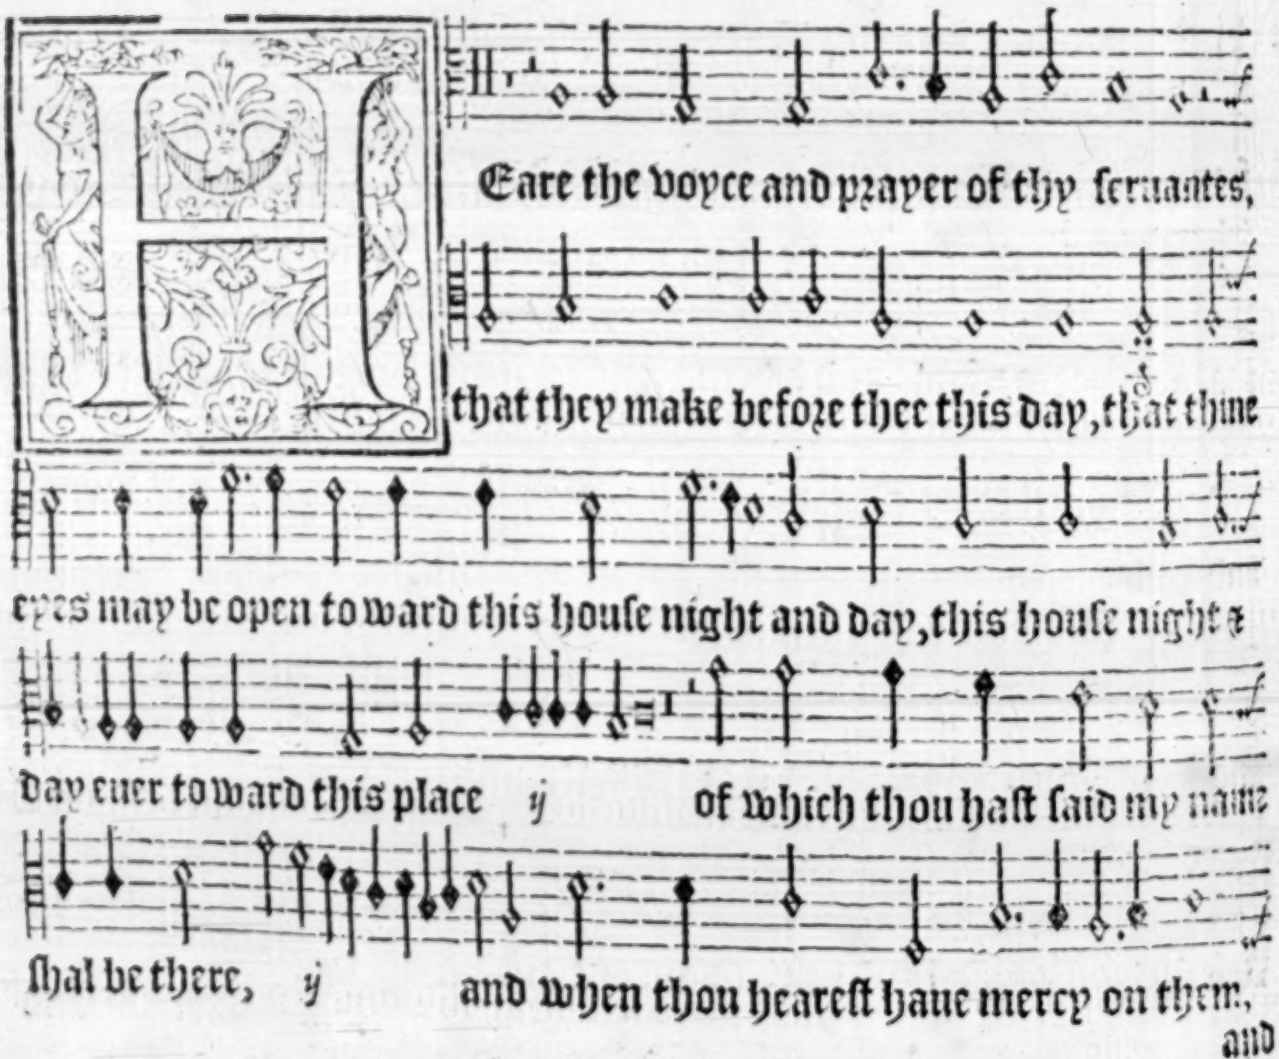 HEare the voyce and prayer of thy seruantes,
that they make before thee this day, that thine
eyes may be open toward this house night and day, this house night &
day euer toward this place ij of which thou hast said my name
shal be there, ij and when thou hearest haue mercy on them,
and